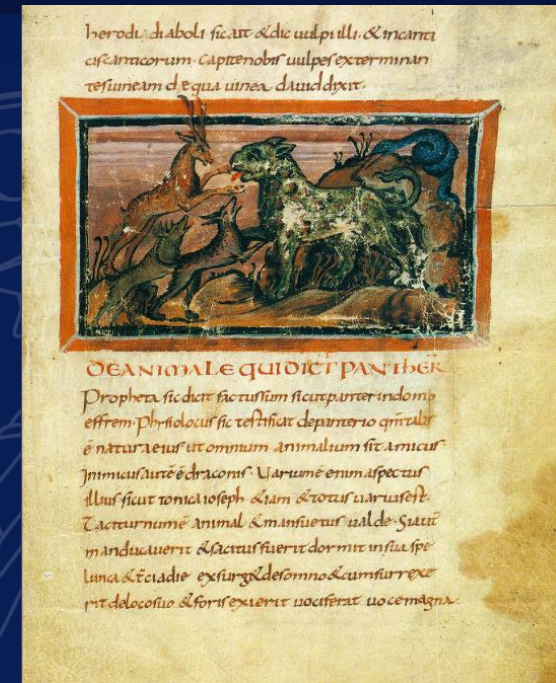 herodi. diaboli sicait &dic uulpi illi. &incanti
ciscanticorum. capitenobis uulpes exterminan
tesuineam deequa uinea. dauid dixit.
DEANIMALE QUI DICT PANTHER
Propheta sic dicit factus sum sicut panter in domo
effrem. Phisiolocus sic testificat de panterio qm talis
ē natura eius ut omnium animalium sit amicus
Inimicus autē ē draconis. Uariumē enim aspectus
illius sicut tonica ioseph &iam &totus uarius est.
Taciturnumē animal &mansuetus ualde. Siaut
manducauerit &saciatus fuerit dormit in sua spe
lunca &tciadie exsurg&desomno &cum surrexe
rit de loco suo &foris exierit uociferat uoce magna